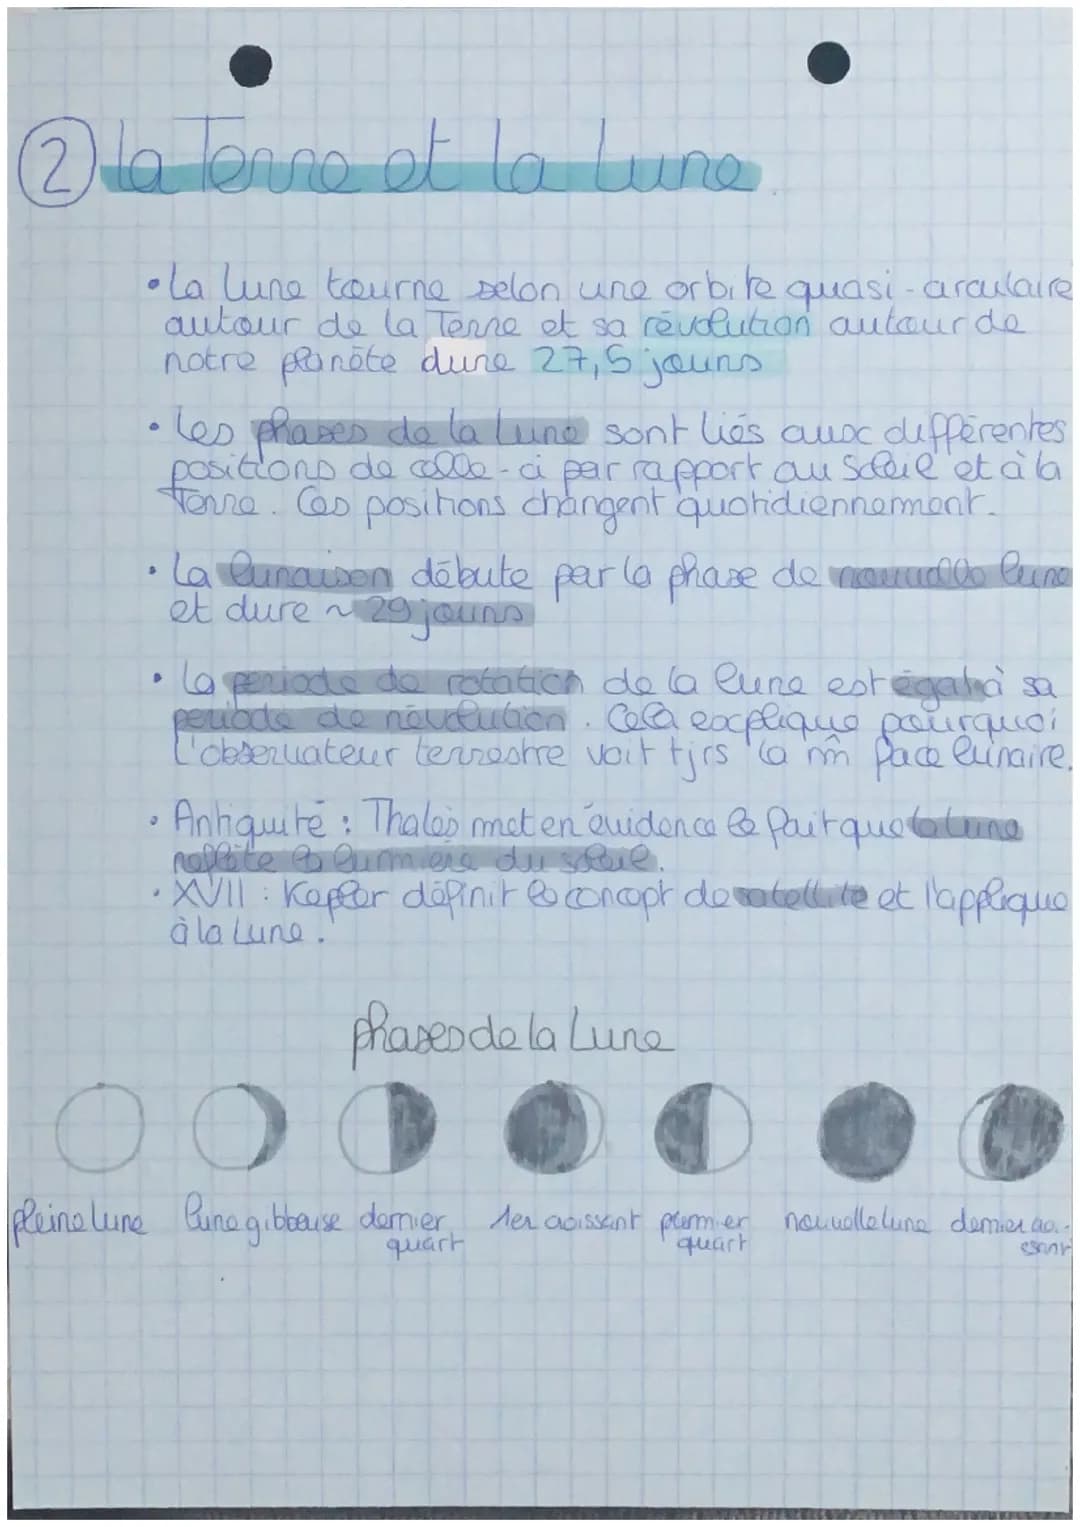 2 La Terre et la Lune
• La Lune tourne selon une orbite quasi-circulaire
autour de la Terre et sa révolution autour de
notre planète dure 27,5 jours
• Les phases de la Lune sont liés aux différentes
positions de celle-ci par rapport au Soleil et à la
Terre. Ces positions changent quotidiennement.
• La lunaison débute par la phase de nouvelle lune
et dure ~ 29 jours
• La periode de rotation de la lune est égal à sa
periode de révolution. Cela explique pourquoi
l'observateur terrestre voit tjrs la m̂ face lunaire.
• Antiquité : Thalès met en évidence le fait que la lune
reflète la lumière du soleil.
• XVII : Kepler définit le concept de satellite et l'applique
à la Lune.
phases de la Lune
pleine lune lune gibbeuse dernier quart 1er croissant premier quart nouvelle lune dernier croissant